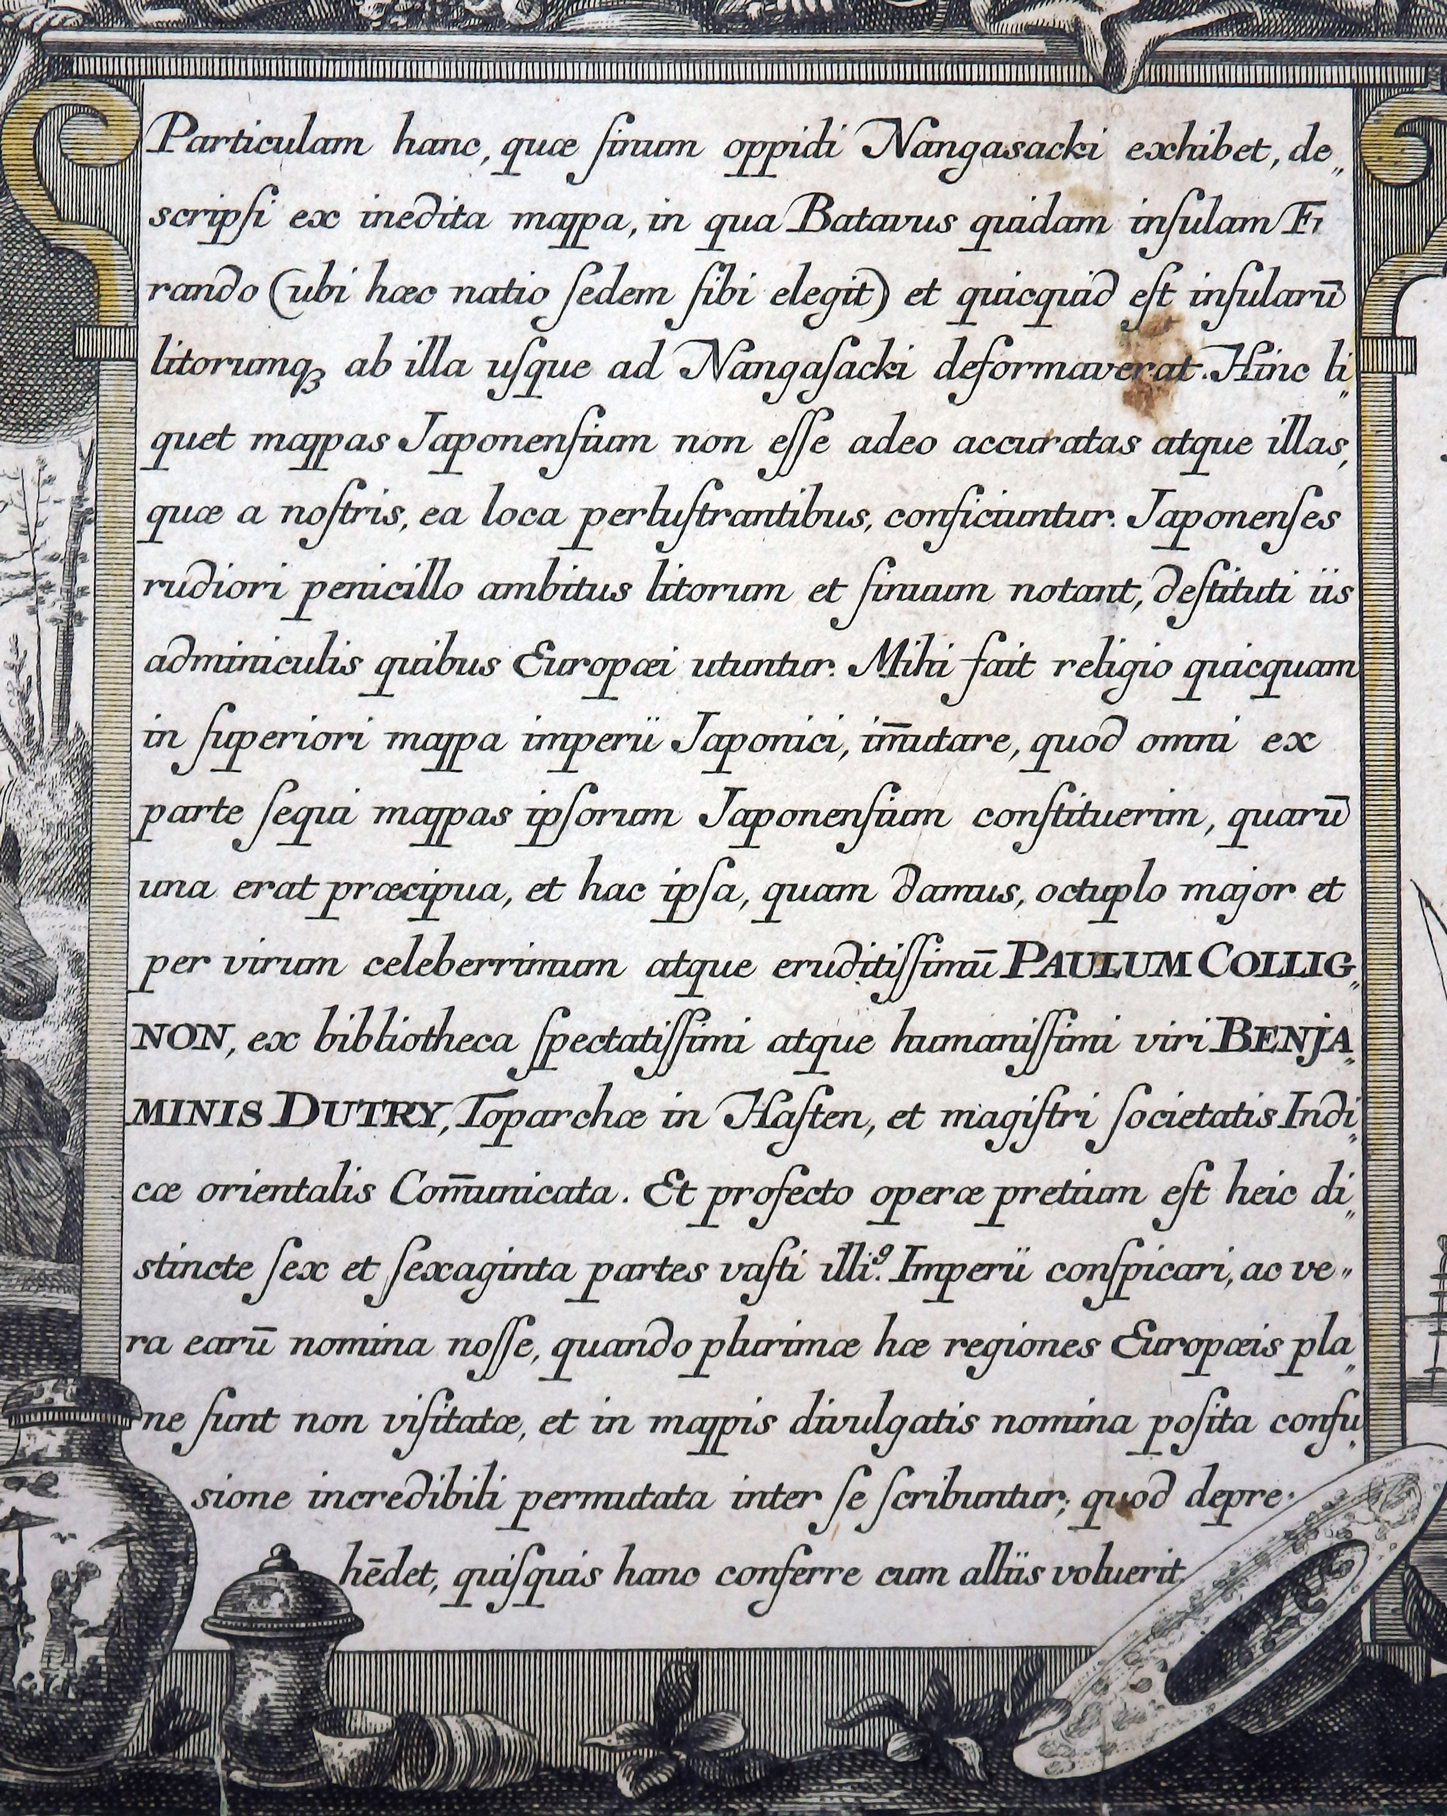 Particulam hanc, quæ ſinum oppidi Nangasacki exhibet, de„
scripſi ex inedita mappa, in qua Batavus quidam inſulam Fi
rando (ubi hæc natio ſedem ſibi elegit) et quicquid eſt inſularū
litorumqꝫ ab illa uſque ad Nangaſacki deformaverat. Hinc li„
quet mappas Japonenſium non eſſe adeo accuratas atque illas,
quæ a noſtris, ea loca perluſtrantibus, conficiuntur. Japonenſes
rudiori penicillo ambitus litorum et ſinuum notant, deſtituti iis
adminiculis quibus Europæi utuntur. Mihi fait religio quicquam
in ſuperiori mappa imperii Japonici, im̄utare, quod omni ex
parte ſequi mappas ipſorum Japonenſium conſtituerim, quarū
una erat præcipua, et hac ipſa, quam damus, octuplo major et
per virum celeberrimum atque eruditiſſimū PAULUM COLLIG„
NON, ex bibliotheca ſpectatiſſimi atque humaniſſimi viri BENJA„
MINIS DUTRY, Toparchæ in Haſten, et magiſtri ſocietatis Indi„
cæ orientalis Com̄unicata. Et profecto operæ pretium eſt heic di„
stincte ſex et ſexaginta partes vaſti illiꝰ. Imperii conſpicari, ac ve„
ra earū nomina noſſe, quando plurimæ hæ regiones Europæis pla„
ne ſunt non viſitatæ, et in mappis divulgatis nomina poſita confu„
sione incredibili permutata inter ſe ſcribuntur; quod depre„
hēdet, quiſquis hanc conferre cum alliis voluerit.